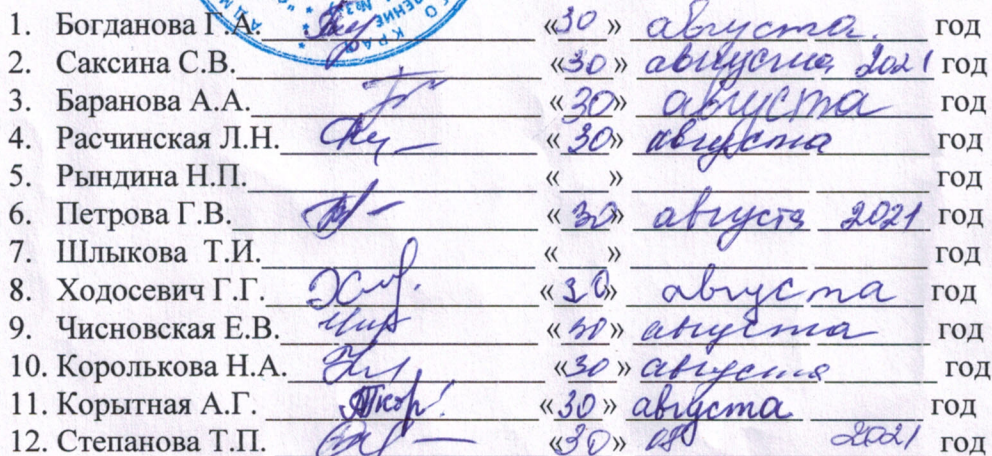 1. Богданова Г.А. «30» августа. год
2. Саксина С.В. «30» августа 2021 год
3. Баранова А.А. «30» августа год
4. Расчинская Л.Н. «30» августа год
5. Рындина Н.П. « » год
6. Петрова Г.В. «30» августа 2021 год
7. Шлыкова Т.И. « » год
8. Ходосевич Г.Г. «30» августа год
9. Чисновская Е.В. «30» августа год
10. Королькова Н.А. «30» августа год
11. Корытная А.Г. «30» августа год
12. Степанова Т.П. «30» 08 2021 год